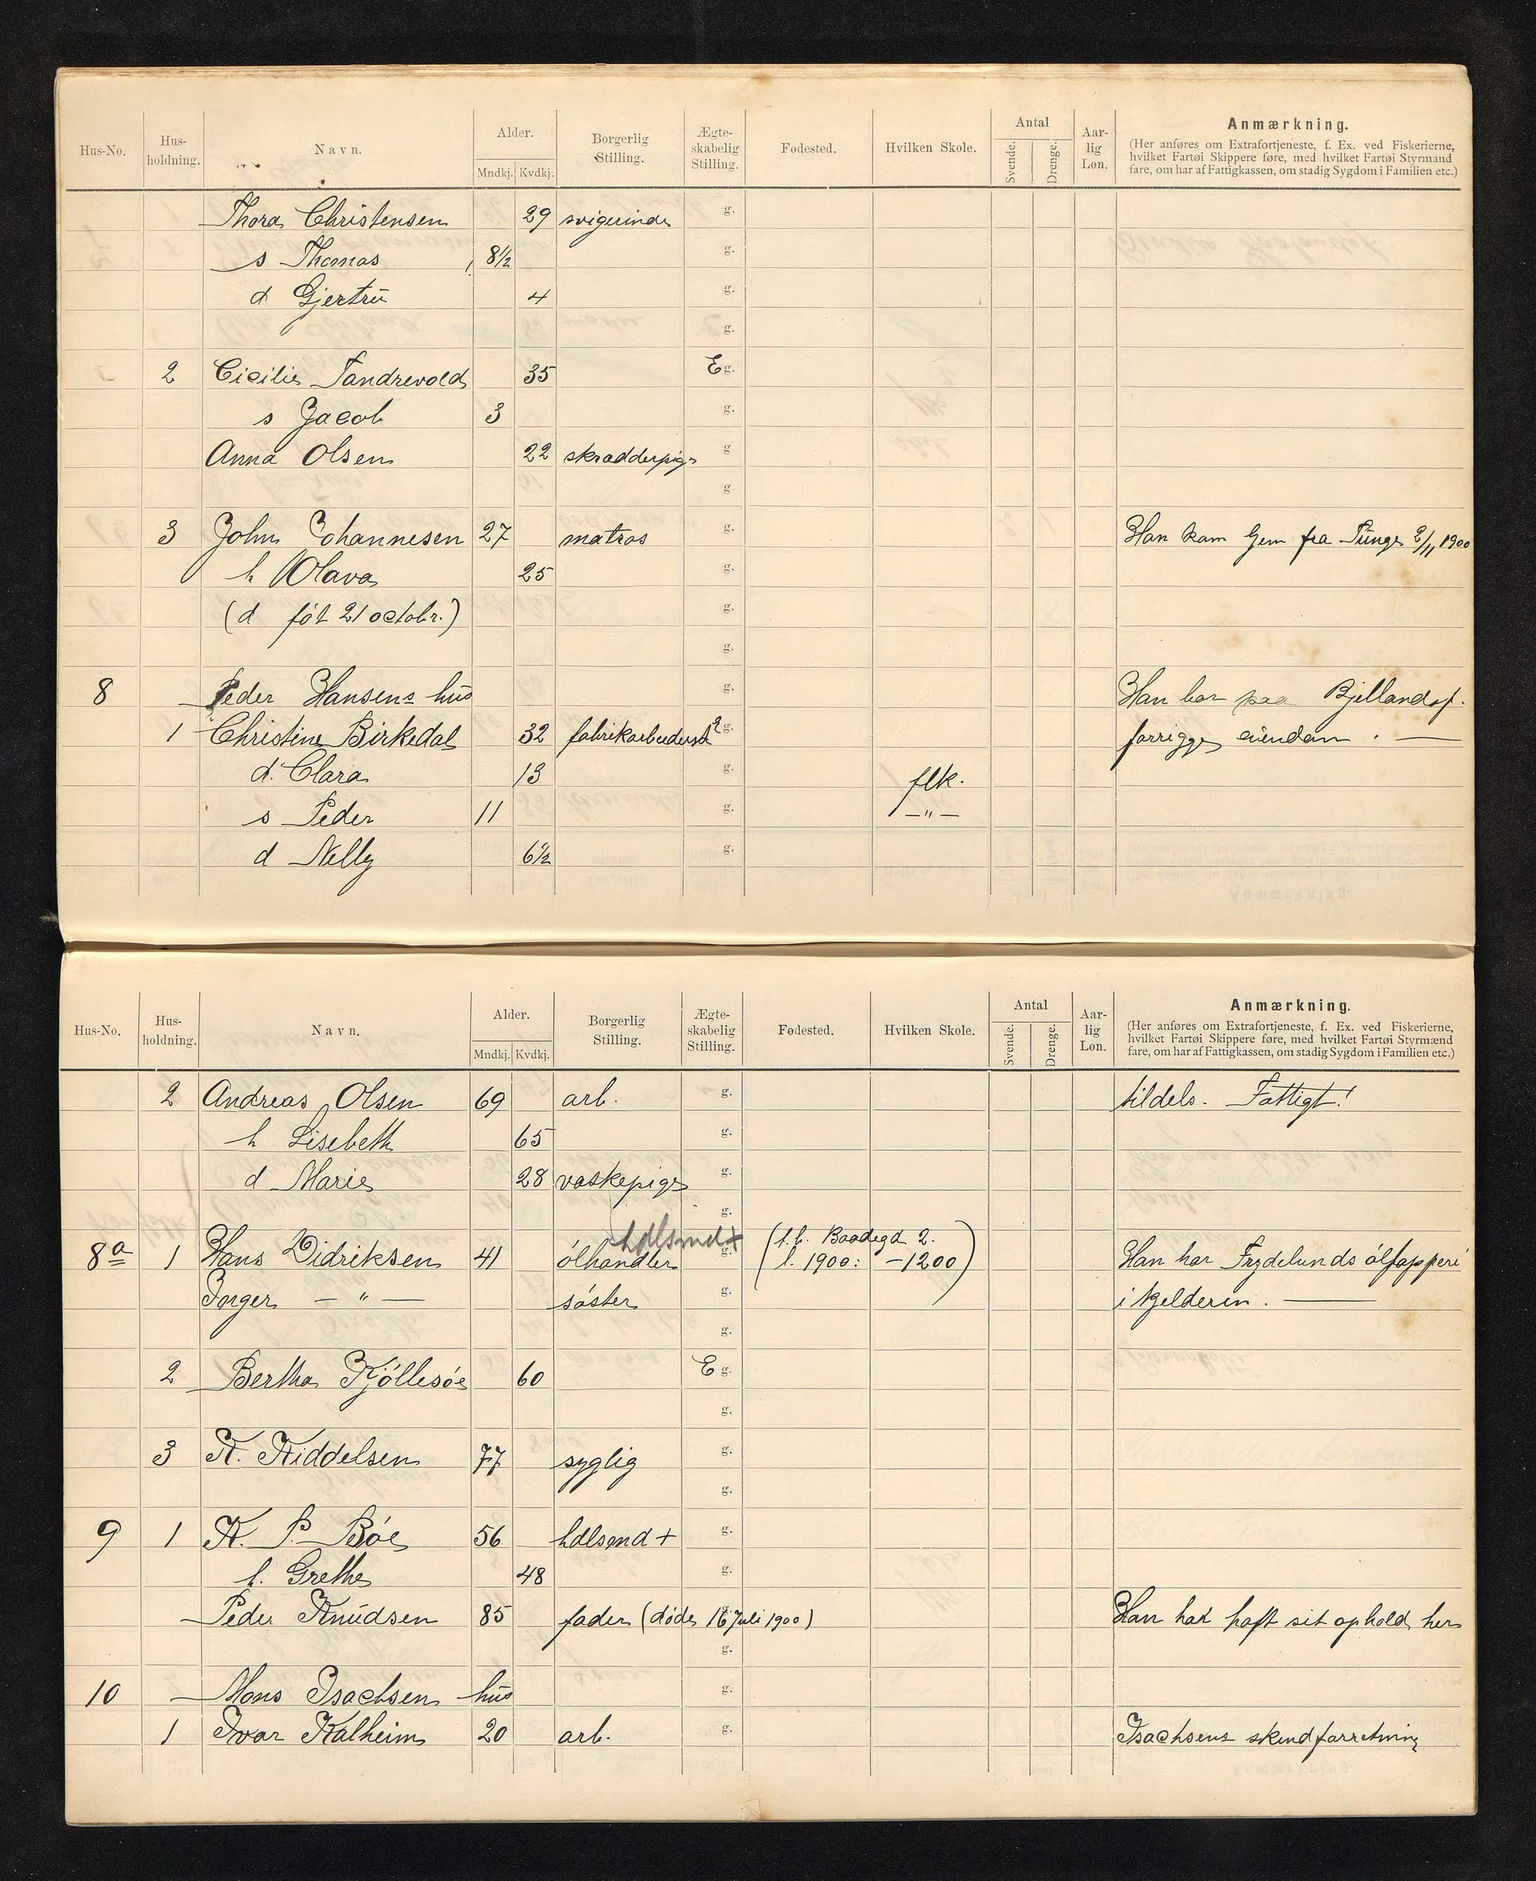 Hus-No. Hus-holdning. Navn. Alder. Mndkj. Kvdkj. Borgerlig Stilling. Ægte-skabelig Stilling. Fødested. Hvilken Skole. Antal Svende. Drenge. Aar-lig Løn. Anmærkning.
(Her anføres om Extrafortjeneste, f. Ex. ved Fiskerierne,
hvilket Fartøi Skippere føre, med hvilket Fartøi Styrmænd
fare, om har af Fattigkassen, om stadig Sygdom i Familien etc.)
Thora Christensen 29 svigerinde g.
s Thomas 8½ g.
d Gjertrü 4 g.
g.
2 Cicilie Tandrevold 35 E g.
s Jacob 3 g.
Anna Olsen 22 skrædderpige g
g.
3 John Johannesen 27 matros g. Han kom hjem fra 2/11 1900
h Olava 25 g.
(d føt 21 octobr.) g.
g.
8 Peder Hansens hus Han bor paa Bjellandsf.
1 Christine Birkedal 32 g. forrigge eiendom. —
d. Clara 13 g. flk.
s Peder 11 g. —"—
d Nelly 6½ g.
Hus-No. Hus-holdning. Navn. Alder. Mndkj. Kvdkj. Borgerlig Stilling. Ægte-skabelig Stilling. Fødested. Hvilken Skole. Antal Svende. Drenge. Aar-lig Løn. Anmærkning.
(Her anføres om Extrafortjeneste, f. Ex. ved Fiskerierne,
hvilket Fartøi Skippere føre, med hvilket Fartøi Styrmænd
fare, om har af Fattigkassen, om stadig Sygdom i Familien etc.)
2 Andreas Olsen 69 arb. g. tildels. Fattigt!
h Lisebeth 65 g.
d Marie 28 vaskepige g.
g.
hdlsmd+ (f.b. Baadegd 2.
8a 1 Hans Didriksen 41 ølhandler g. l. 1900: —1200) Han har Frydelunds ølfapperi
Inger —"— søster g. i kjelderen. —
g.
2 Bertha Kjøllesøe 60 E g.
g.
3 K. Kiddelsen 77 syglig g.
g.
9 1 K. P. Bøe 56 hdlsmd + g.
h. Grethe 48 g.
Peder Knüdsen 85 fader (døde 16 Juli 1900) g. Han har haft sit ophold her
g.
10 Mons Isachsens hus g.
1 Ivar Kalheim 20 arb. g. Isachsens skindforretning